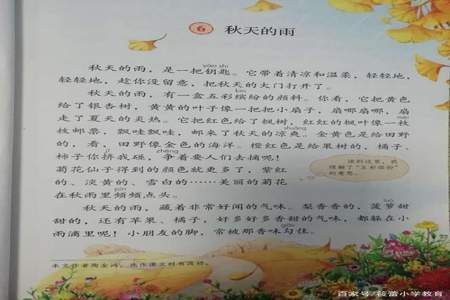 6 秋天的雨
秋天的雨，是一把钥匙。它带着清凉和温柔，轻轻地，
轻轻地，趁你没留意，把秋天的大门打开了。
秋天的雨，有一盒五彩缤纷的颜料。你看，它把黄色
给了银杏树，黄黄的叶子像一把把小扇子，扇哪扇哪，扇
走了夏天的炎热。它把红色给了枫树，红红的枫叶像一枚
枚邮票，飘哇飘哇，邮来了秋天的凉爽。金黄色是给田野
的，看，田野像金色的海洋。橙红色是给果树的，橘子、
柿子你挤我碰，争着要人们去摘呢！
菊花仙子得到的颜色就更多了，紫红
的、淡黄的、雪白的……美丽的菊花
在秋雨里频频点头。
秋天的雨，藏着非常好闻的气味。梨香香的，菠萝甜
甜的，还有苹果、橘子，好多好多香甜的气味，都躲在小
雨滴里呢！小朋友的脚，常被那香味勾住。
读到这里，我
理解了“五彩缤纷”
的意思。
本文作者陶金鸿，选作课文时有改动。
百家号/筱蕾小学教育